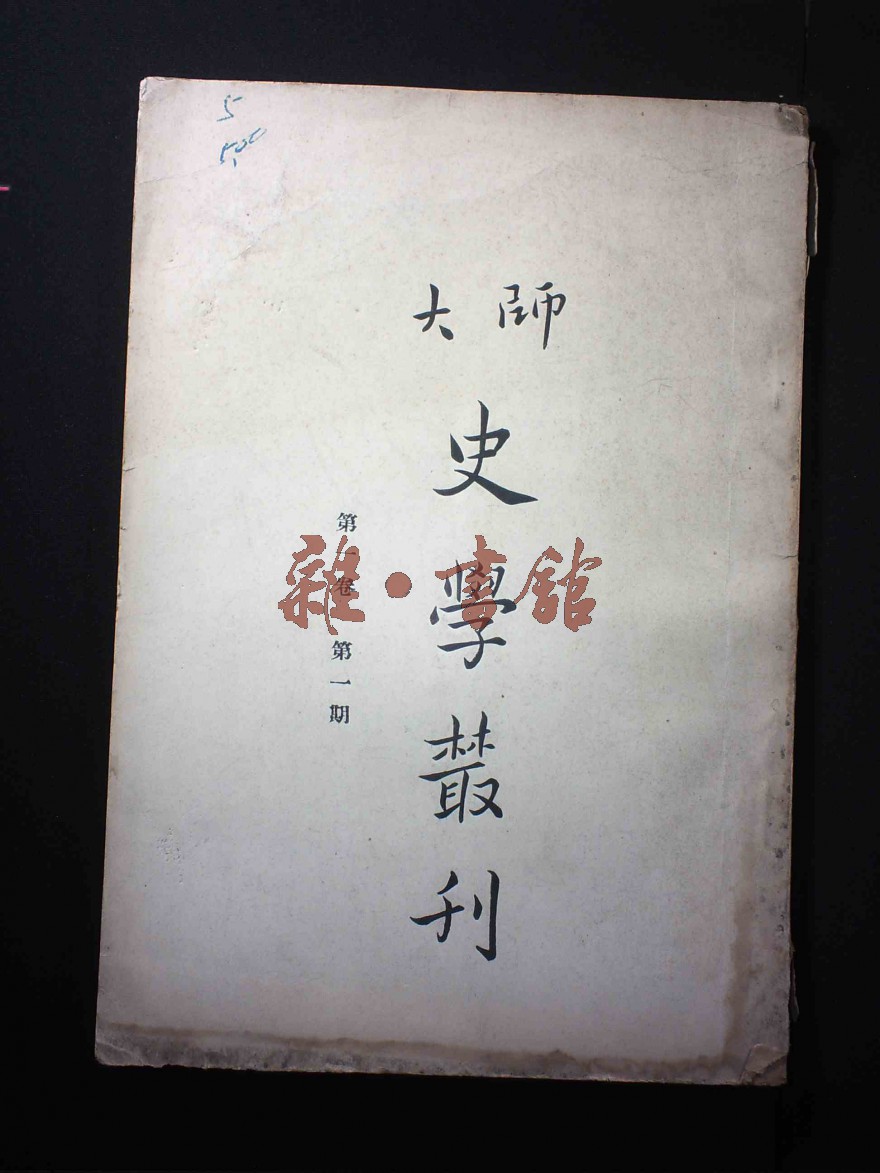 師大
史學叢刊
第一卷 第一期
雜·書館
5